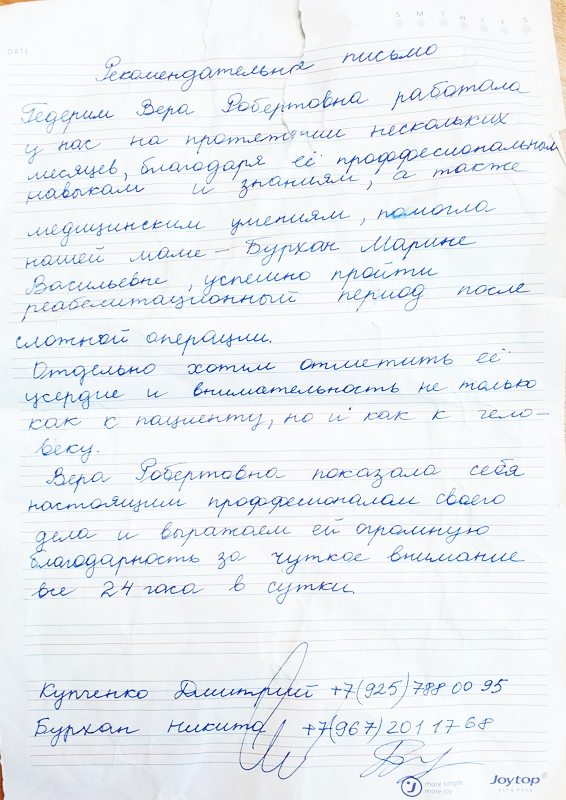 S M T W T F S
DATE
Рекомендательное письмо
Гедерим Вера Робертовна работала
у нас на протяжении нескольких
месяцев, благодаря её проффесиональным
навыкам и знаниям, а также
медицинским умениям, помогла
нашей маме – Бурхан Марине
Васильевне, успешно пройти
реабелитационный период после
сложной операции.
Отдельно хотим отметить её
усердие и внимательность не только
как к пациенту, но и как к чело-
веку.
Вера Робертовна показала себя
настоящим проффесионалом своего
дела и выражаем ей огромную
благодарность за чуткое внимание
все 24 часа в сутки.
Купченко Дмитрий +7(925)788 00 95
Бурхан Никита +7(967)201 17 68
more simple
more joy
Joytop